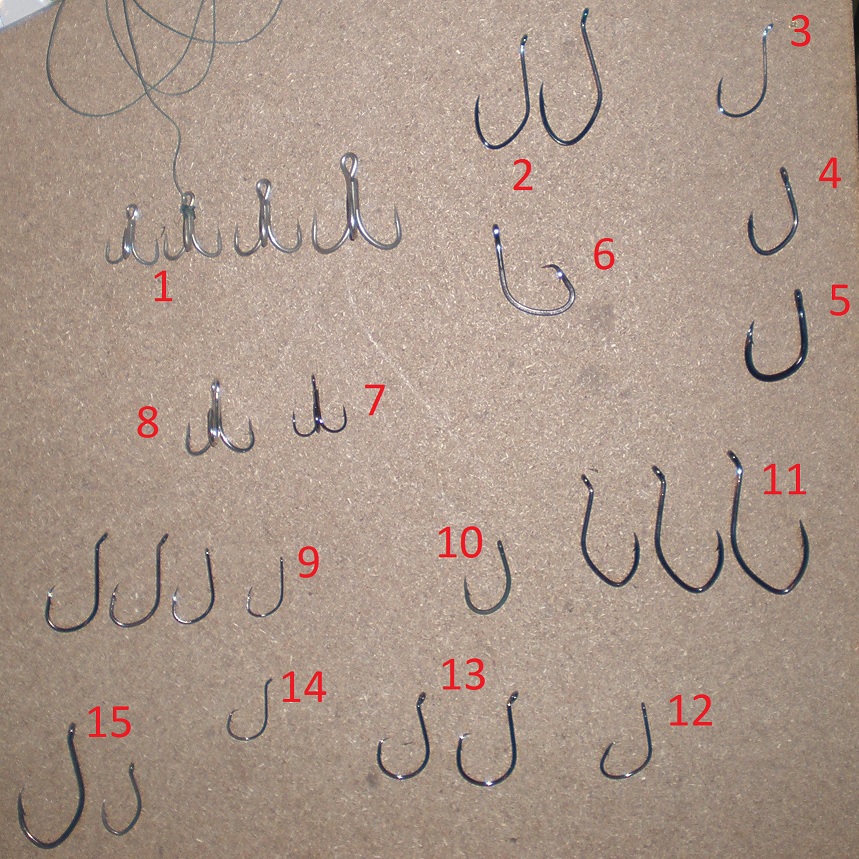 3
2
4
6
1
5
8
7
11
10
9
13
14
15
12